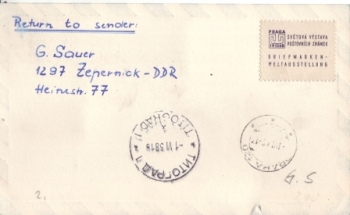 Return to sender:
G. Sauer
1297 Zepernick-DDR
Heinestr. 77
PRAGA
SVĚTOVÁ VÝSTAVA
POŠTOVNÍCH ZNÁMEK
BRIEFMARKEN-
WELTAUSSTELLUNG
TITOGRAD 1
ТИТОГРАД 1
G. S
2.